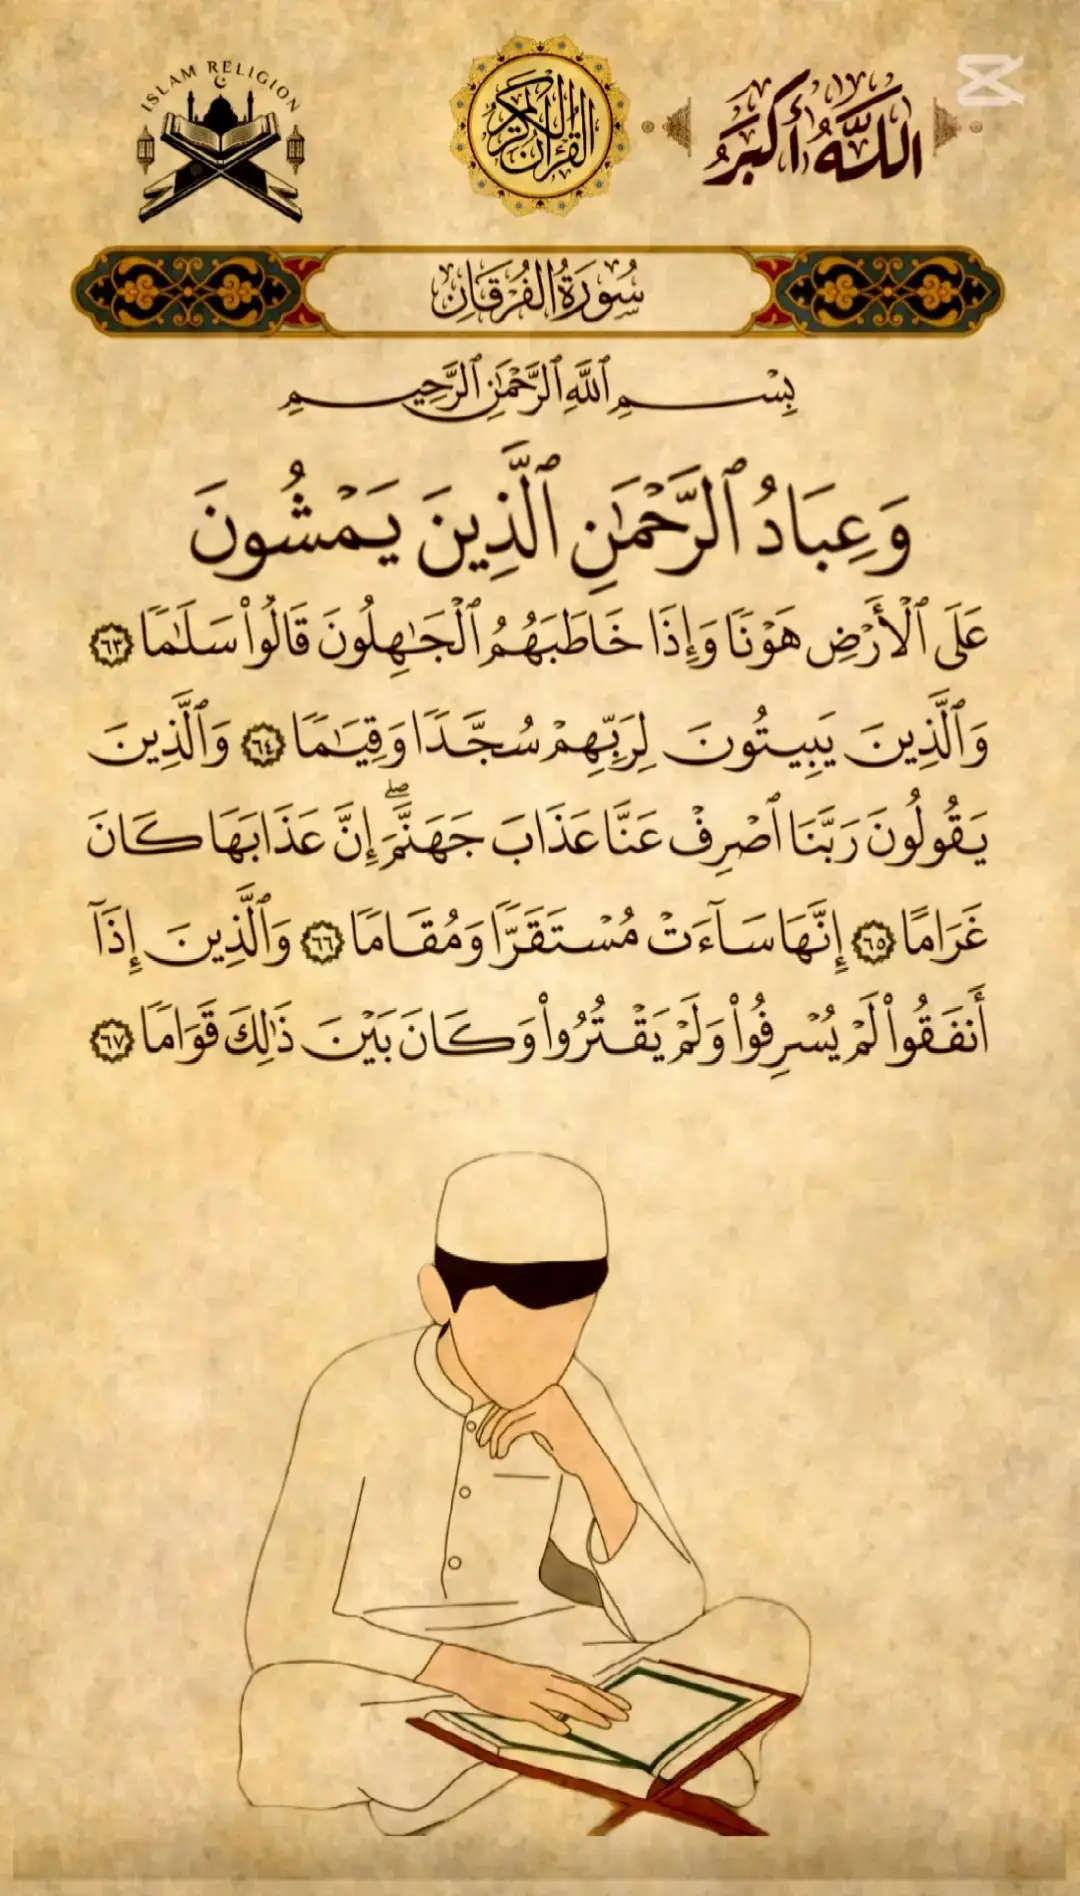 ISLAM RELIGION
القرآن الكريم
اللَّهُ أَكْبَرُ
سُورَةُ الفُرْقَانِ
بِسْمِ ٱللَّهِ ٱلرَّحْمَٰنِ ٱلرَّحِيمِ
وَعِبَادُ ٱلرَّحْمَٰنِ ٱلَّذِينَ يَمْشُونَ
عَلَى ٱلْأَرْضِ هَوْنًا وَإِذَا خَاطَبَهُمُ ٱلْجَٰهِلُونَ قَالُوا۟ سَلَٰمًا ٦٣
وَٱلَّذِينَ يَبِيتُونَ لِرَبِّهِمْ سُجَّدًا وَقِيَٰمًا ٦٤ وَٱلَّذِينَ
يَقُولُونَ رَبَّنَا ٱصْرِفْ عَنَّا عَذَابَ جَهَنَّمَ ۖ إِنَّ عَذَابَهَا كَانَ
غَرَامًا ٦٥ إِنَّهَا سَآءَتْ مُسْتَقَرًّا وَمُقَامًا ٦٦ وَٱلَّذِينَ إِذَآ
أَنفَقُوا۟ لَمْ يُسْرِفُوا۟ وَلَمْ يَقْتُرُوا۟ وَكَانَ بَيْنَ ذَٰلِكَ قَوَامًا ٦٧